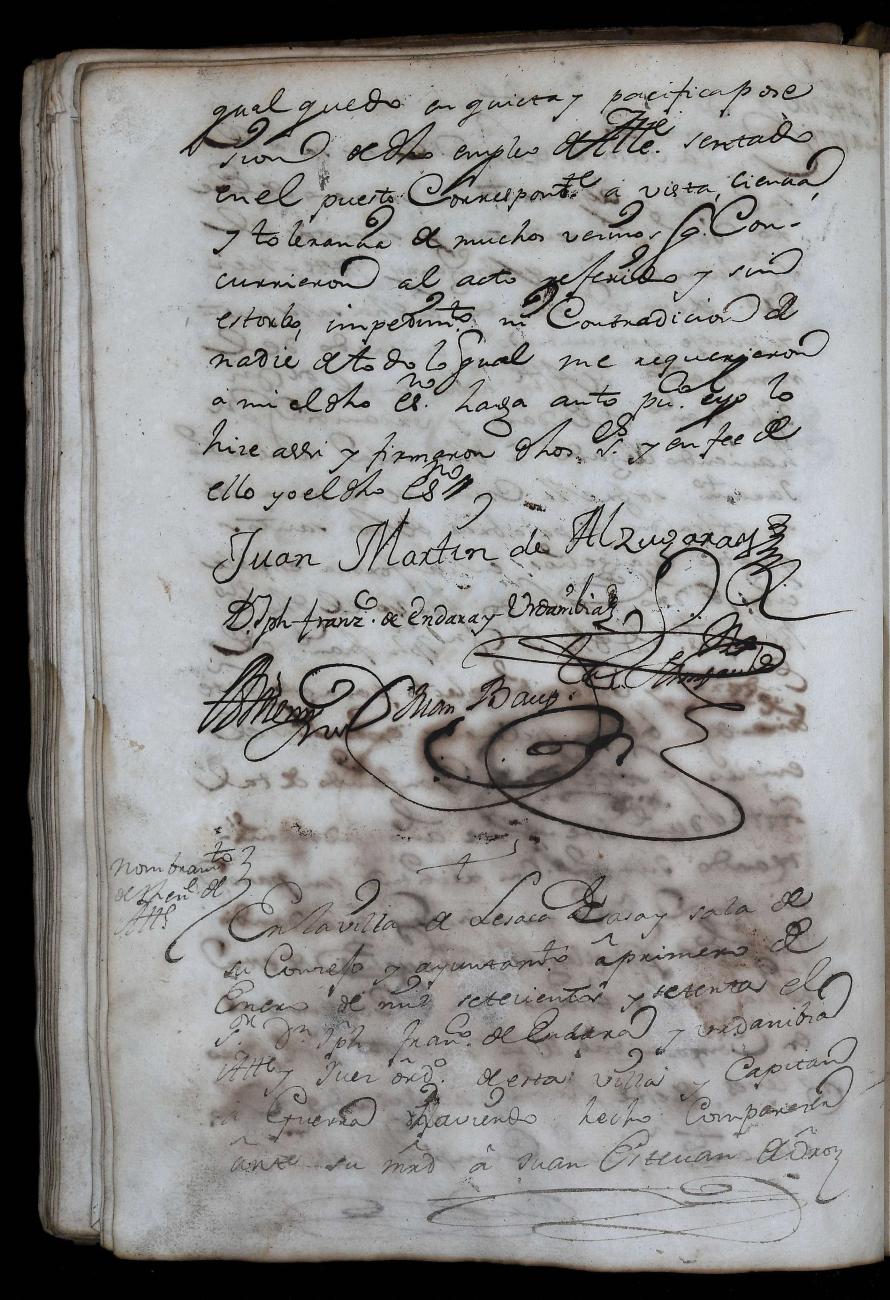 qual quedo en quieta y pacifica pose
sion de dho empleo de The. Alle. sentado
en el puesto Correspont.te a vista, ciencia
y toleranzia de muchos vecinos q. Con-
currieron al acto referido y sin
estorbo, impedim.to ni Contradicion de
nadie de todo lo qual me requerieron
a mi el dho es.no haga auto pu.co e yo lo
hize assi y firmaron dhos S.es y en fee de
ello yo el dho es.no
Juan Martin de Alzugaray
D. Jph franz.co de Endara y Vrdanibia
Juan Baup.
Nombram.to
de Then.te de
Alle
En la villa de Lesaca Casa y sala de
su Concejo y ayuntam.to a primero de
Enero de mil setecientos y setenta el
S.r D.n Jph Fran.co de Endara y vrdanibia
Alle y Juez ord.o de esta villa y Capitan
a Guerra haviendo hecho Comparecer
ante su mrd a Juan Estevan